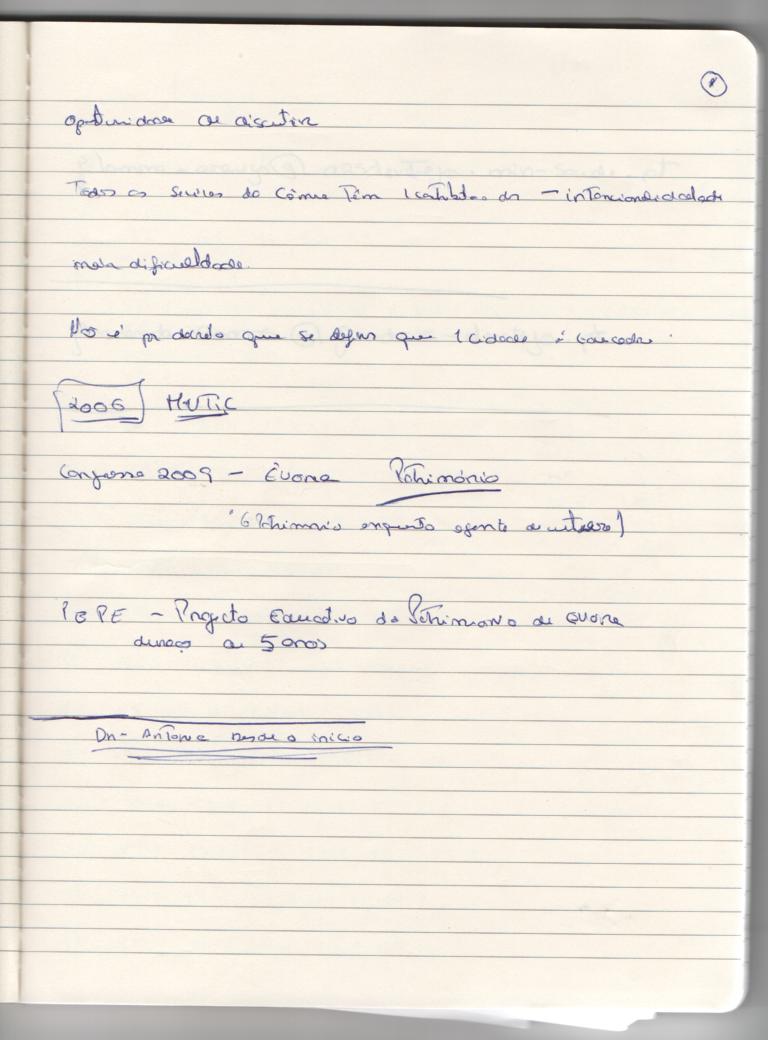 oportunidade de discutir
Todos os serviços da Câmara Têm - intencionalidade
mais dificuldade.
é por decreto que se define que 1 cidade é educadora.
2006 
Congresso 2009 - Évora Património
(O Património enquanto agente )
PEPE - Projecto Educativo do Património de Évora
duração de 5 anos
Drª Antónia desde o início